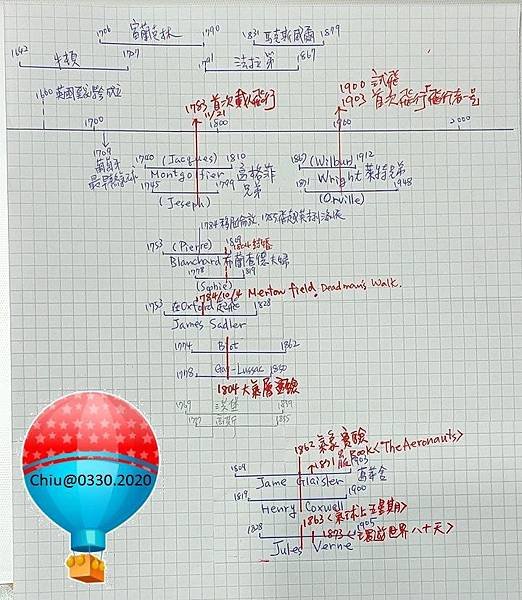 1706 富蘭克林 1790
1831 馬克斯威爾 1879
1642 牛頓 1727
1791 法拉第 1867
1660 英國皇家學會成立
1783 首次載人飛行
11/21
1900 試飛
1903 首次飛行 飛行者一號
1700 1800 1900 2000
1709
葡萄牙
1740 (Jacques) 1810
Montgolfier
1745 1799
(Joseph)
兄弟
1867 (Wilbur) 1912
Wright 萊特兄弟
1871 1948
(Orville)
1784
1785
1753 (Pierre) 1809
1804
Blanchard 布蘭查德夫婦
1778 1819
(Sophie)
1784/10/4 Merton field. Deadman's Walk.
1753 在Oxford起飛 1828
James Sadler
1774 Biot 1862
1778 Gay-Lussac 1850
1804 大氣層實驗
1769 1859
1862 氣象實驗
1871 Book <The Aeronauts>
1809 1903
Jame Glaisher 葛萊舍
1819 1900
Henry Coxwell
1863 <氣球上五星期>
1828 1905
1873 <環遊世界八十天>
Jules Verne
Chiu@0330.2020